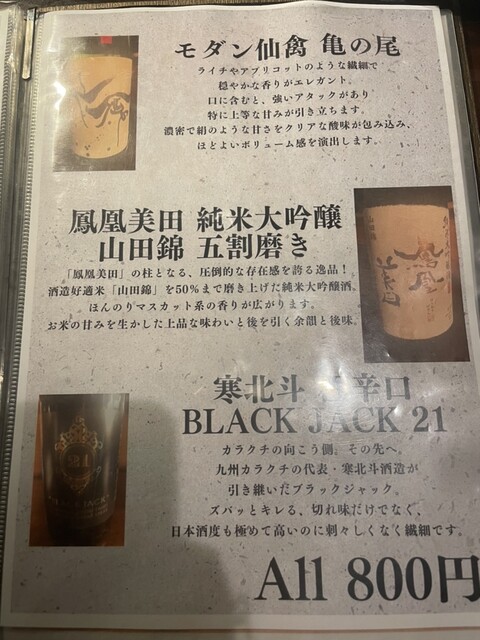 モダン仙禽 亀の尾
ライチやアプリコットのような繊細で
穏やかな香りがエレガント。
口に含むと、強いアタックがあり
特に上等な甘みが引き立ちます。
濃密で絹のような甘さをクリアな酸味が包み込み、
ほどよいボリューム感を演出します。
鳳凰美田 純米大吟醸
山田錦 五割磨き
「鳳凰美田」の柱となる、圧倒的な存在感を誇る逸品！
酒造好適米「山田錦」を50%まで磨き上げた純米大吟醸酒。
ほんのりマスカット系の香りが広がります。
お米の甘みを生かした上品な味わいと後を引く余韻と後味。
山田錦
寒北斗 辛口
BLACK JACK 21
カラクチの向こう側。その先へ。
九州カラクチの代表・寒北斗酒造が
引き継いだブラックジャック。
ズバッとキレる、切れ味だけでなく、
日本酒度も極めて高いのに刺々しくなく繊細です。
21
All 800円